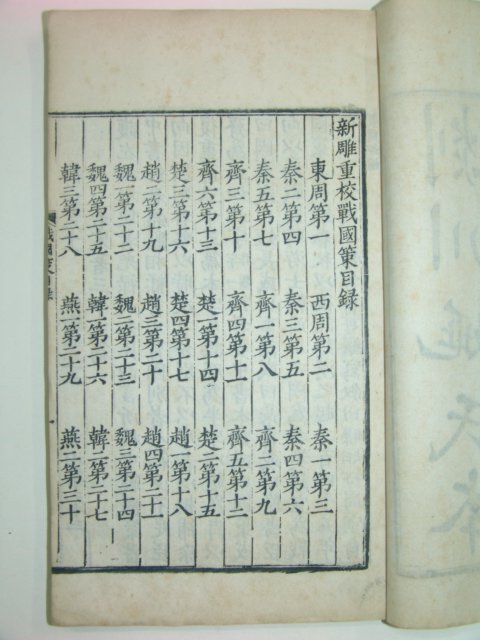 新雕重校戰國策目録
東周第一 西周第二 秦一第三
秦二第四 秦三第五 秦四第六
秦五第七 齊一第八 齊二第九
齊三第十 齊四第十一 齊五第十二
齊六第十三 楚一第十四 楚二第十五
楚三第十六 楚四第十七 趙一第十八
趙二第十九 趙三第二十 趙四第二十一
魏一第二十二 魏二第二十三 魏三第二十四
魏四第二十五 韓一第二十六 韓二第二十七
韓三第二十八 燕一第二十九 燕二第三十